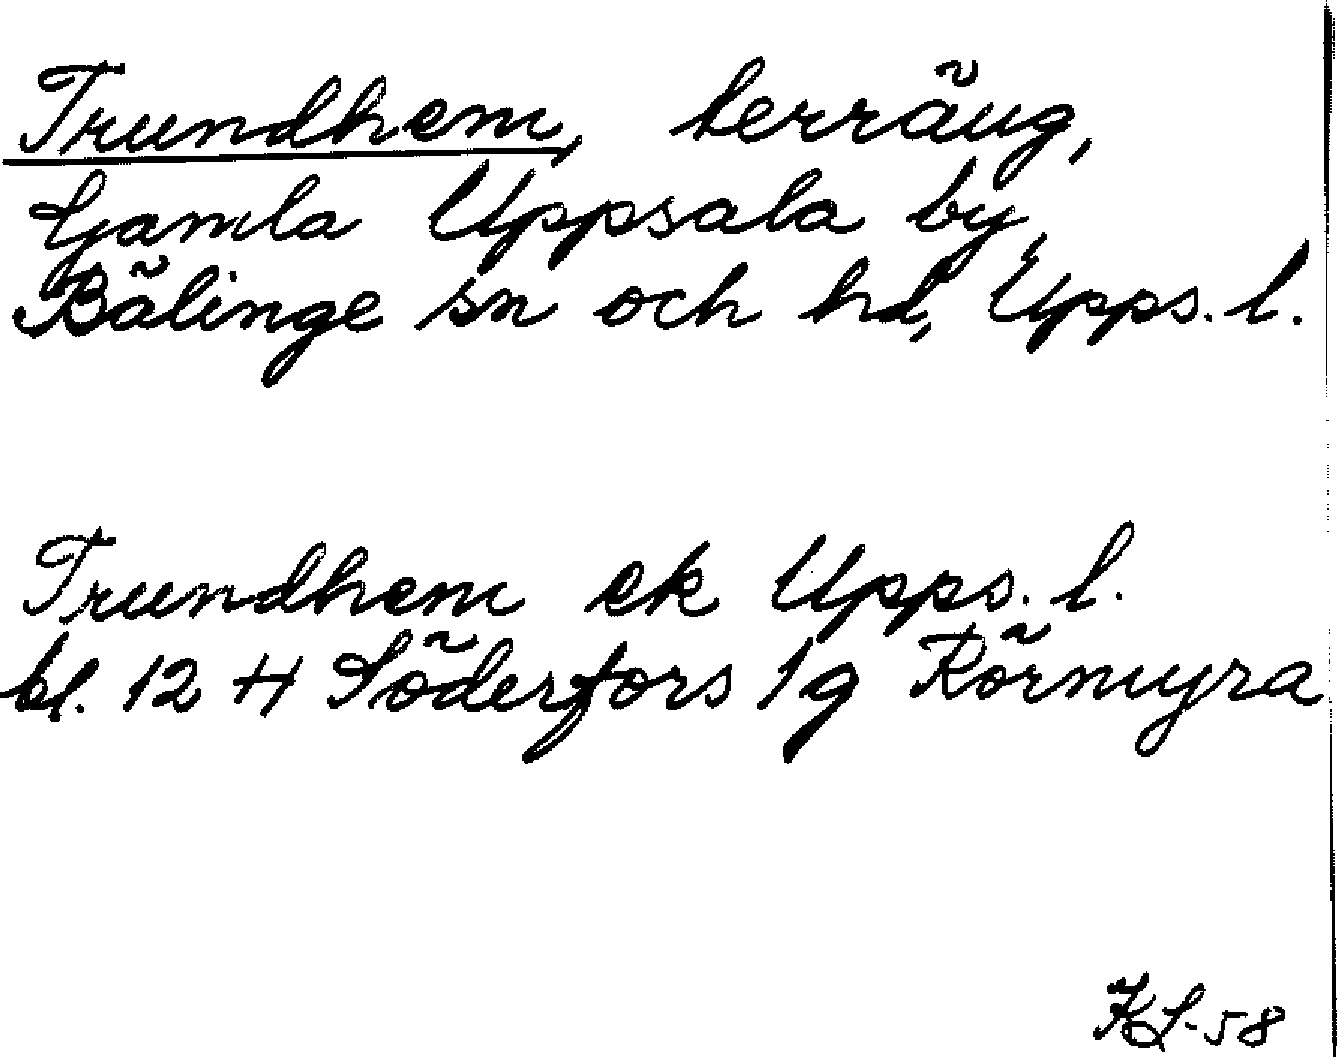 Trundhem, terräng,
Gamla Uppsala by,
Bälinge sn och hd, Upps. l.
Trundhem ek Upps. l.
bl. 12 H Söderfors 1g Rörmyra
KL-58